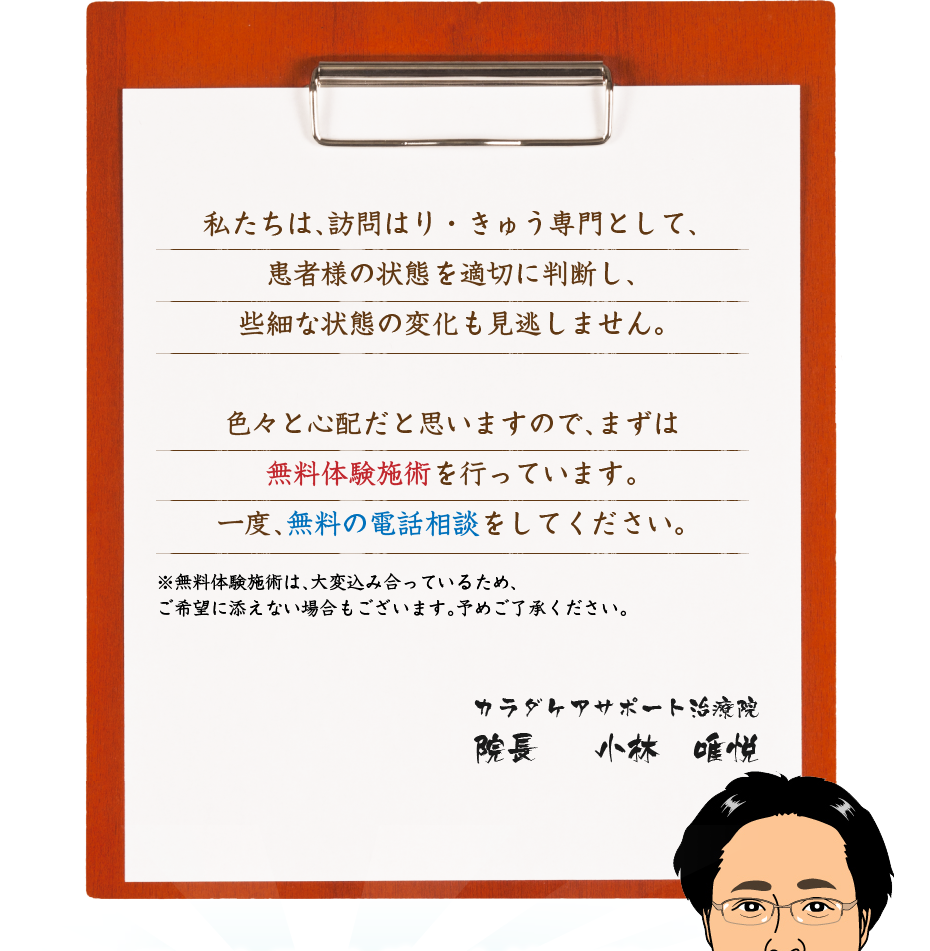 私たちは、訪問はり・きゅう専門として、
患者様の状態を適切に判断し、
些細な状態の変化も見逃しません。
色々と心配だと思いますので、まずは
無料体験施術を行っています。
一度、無料の電話相談をしてください。
※無料体験施術は、大変込み合っているため、
ご希望に添えない場合もございます。予めご了承ください。
カラダケアサポート治療院
院長　小林　唯悦